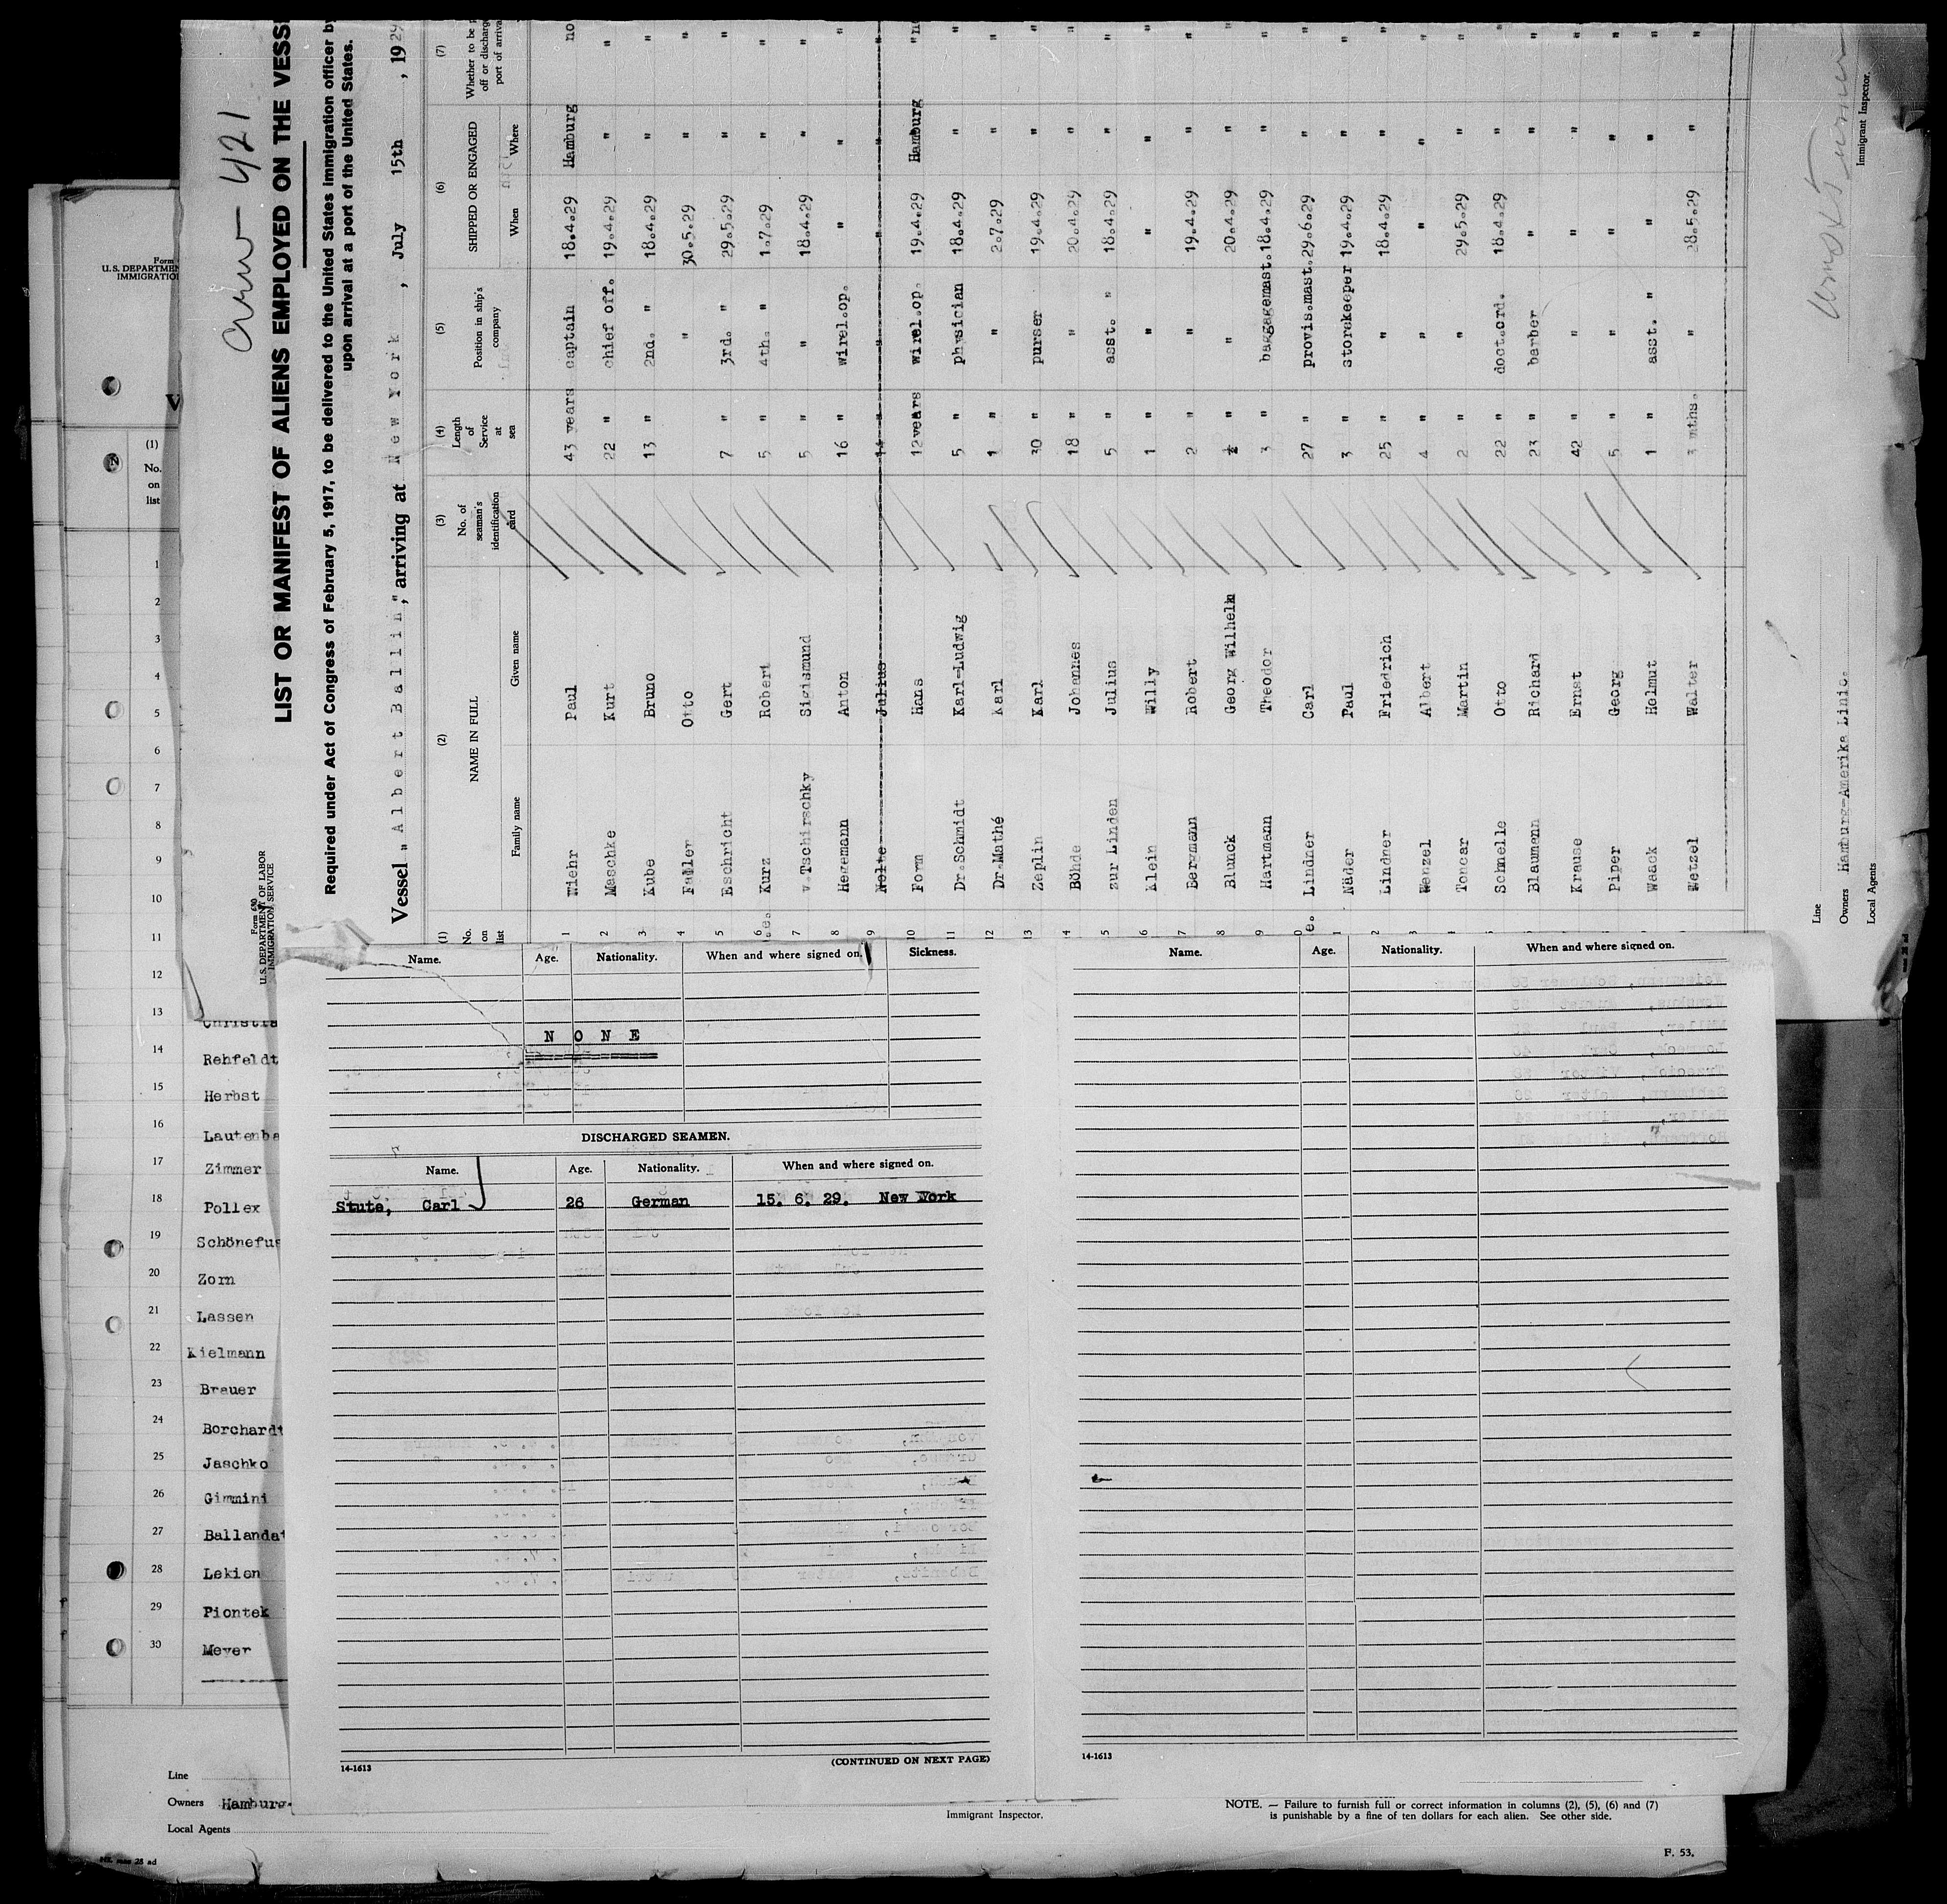 arw 421
LIST OR MANIFEST OF ALIENS EMPLOYED ON THE VESS
Required under Act of Congress of February 5, 1917, to be delivered to the United States immigration officer by
upon arrival at a port of the United States.
Vessel "Albert Ballin", arriving at New York, July 15th, 1929
Form 680
U.S. DEPARTMENT OF LABOR
IMMIGRATION SERVICE
(1) No. on list (2) NAME IN FULL Family name Given name (3) No. of seaman's identification card (4) Length of Service at sea (5) Position in ship's company (6) SHIPPED OR ENGAGED When Where (7) Whether to be off or discharge port of arriva
1 Wiehr Paul 43 years captain 18.4.29 Hamburg no
2 Maschke Kurt 22 " chief off. 19.4.29 " "
3 Kube Bruno 13 " 2nd. " 18.4.29 " "
4 Otto " 30.5.29 " "
5 Eschricht Gert 7 " 3rd. " 29.5.29 " "
6 Kurz Robert 5 " 4th. " 1.7.29 " "
7 v.Tschirschky Sigismund 5 " " 18.4.29 " "
8 Hegemann Anton 16 " wirel.op. " " "
9 Nolte Julius 14 "
10 Form Hans 12 years wirel.op. 19.4.29 Hamburg "no
11 Dr Schmidt Karl-Ludwig 5 " physician 18.4.29 " "
12 Dr Mathé Karl 1 " " 2.7.29 " "
13 Zeplin Karl 30 " purser 19.4.29 " "
14 Böhde Johannes 18 " " 20.4.29 " "
5 zur Linden Julius 5 " asst. " 18.4.29 " "
6 Klein Willy 1 " " " " "
7 Bergmann Robert 2 " " 19.4.29 " "
8 Blunck Georg Wilhelm ½ " " 20.4.29 " "
9 Hartmann Theodor 3 " baggagemast. 18.4.29 " "
0 Lindner Carl 27 " provis.mast. 29.6.29 " "
1 Näder Paul 3 " storekeeper 19.4.29 " "
2 Lindner Friedrich 25 " " 18.4.29 " "
3 Wenzel Albert 4 " " " " "
Toncar Martin 2 " " 29.5.29 " "
Schnelle Otto 22 " doct.ord. 18.4.29 " "
Blaumann Richard 23 " barber " " "
Krause Ernst 42 " " " " "
Piper Georg 5 " " " " "
Waack Helmut 1 " asst. " " " "
Wetzel Walter 3 mths. " 28.5.29 " "
Line
Owners Hamburg-Amerika Linie.
Local Agents
Immigrant Inspector.
Form
U.S. DEPARTMEN
IMMIGRATIO
V
(1)
No.
on
list
1
2
3
4
5
6
7
8
9
10
11
12
13 Christia
14 Rehfeldt
15 Herbst
16 Lautenba
17 Zimmer
18 Pollex
19 Schönefus
20 Zorn
21 Lassen
22 Kielmann
23 Brauer
24 Borchardt
25 Jaschko
26 Gimmini
27 Ballandat
28 Lekien
29 Piontek
30 Meyer
Line
Owners Hamburg-
Local Agents
Immigrant Inspector.
NOTE. — Failure to furnish full or correct information in columns (2), (5), (6) and (7)
is punishable by a fine of ten dollars for each alien. See other side.
F. 53.
Name. Age. Nationality. When and where signed on. Sickness.
NONE
DISCHARGED SEAMEN.
Name. Age. Nationality. When and where signed on.
Stute, Carl 26 German 15. 6. 29. New York
14-1613
(CONTINUED ON NEXT PAGE)
Name. Age. Nationality. When and where signed on.
14-1613